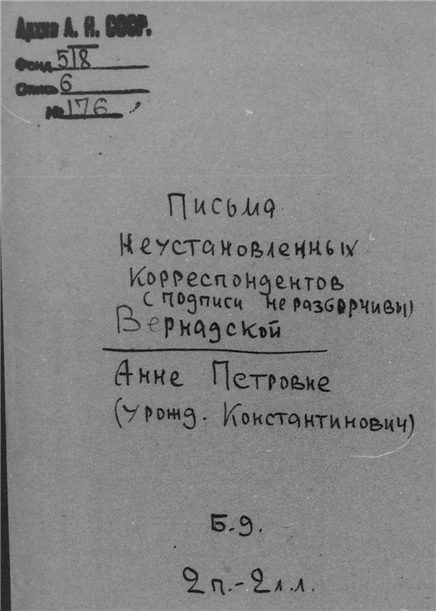 Архив А. Н. СССР.
Фонд 518
Опись 6
№ 176
Письма
Неустановленных
Корреспондентов
(подписи неразборчивы)
Вернадской
Анне Петровне
(урожд. Константинович)
Б.д.
2п.-2л.л.